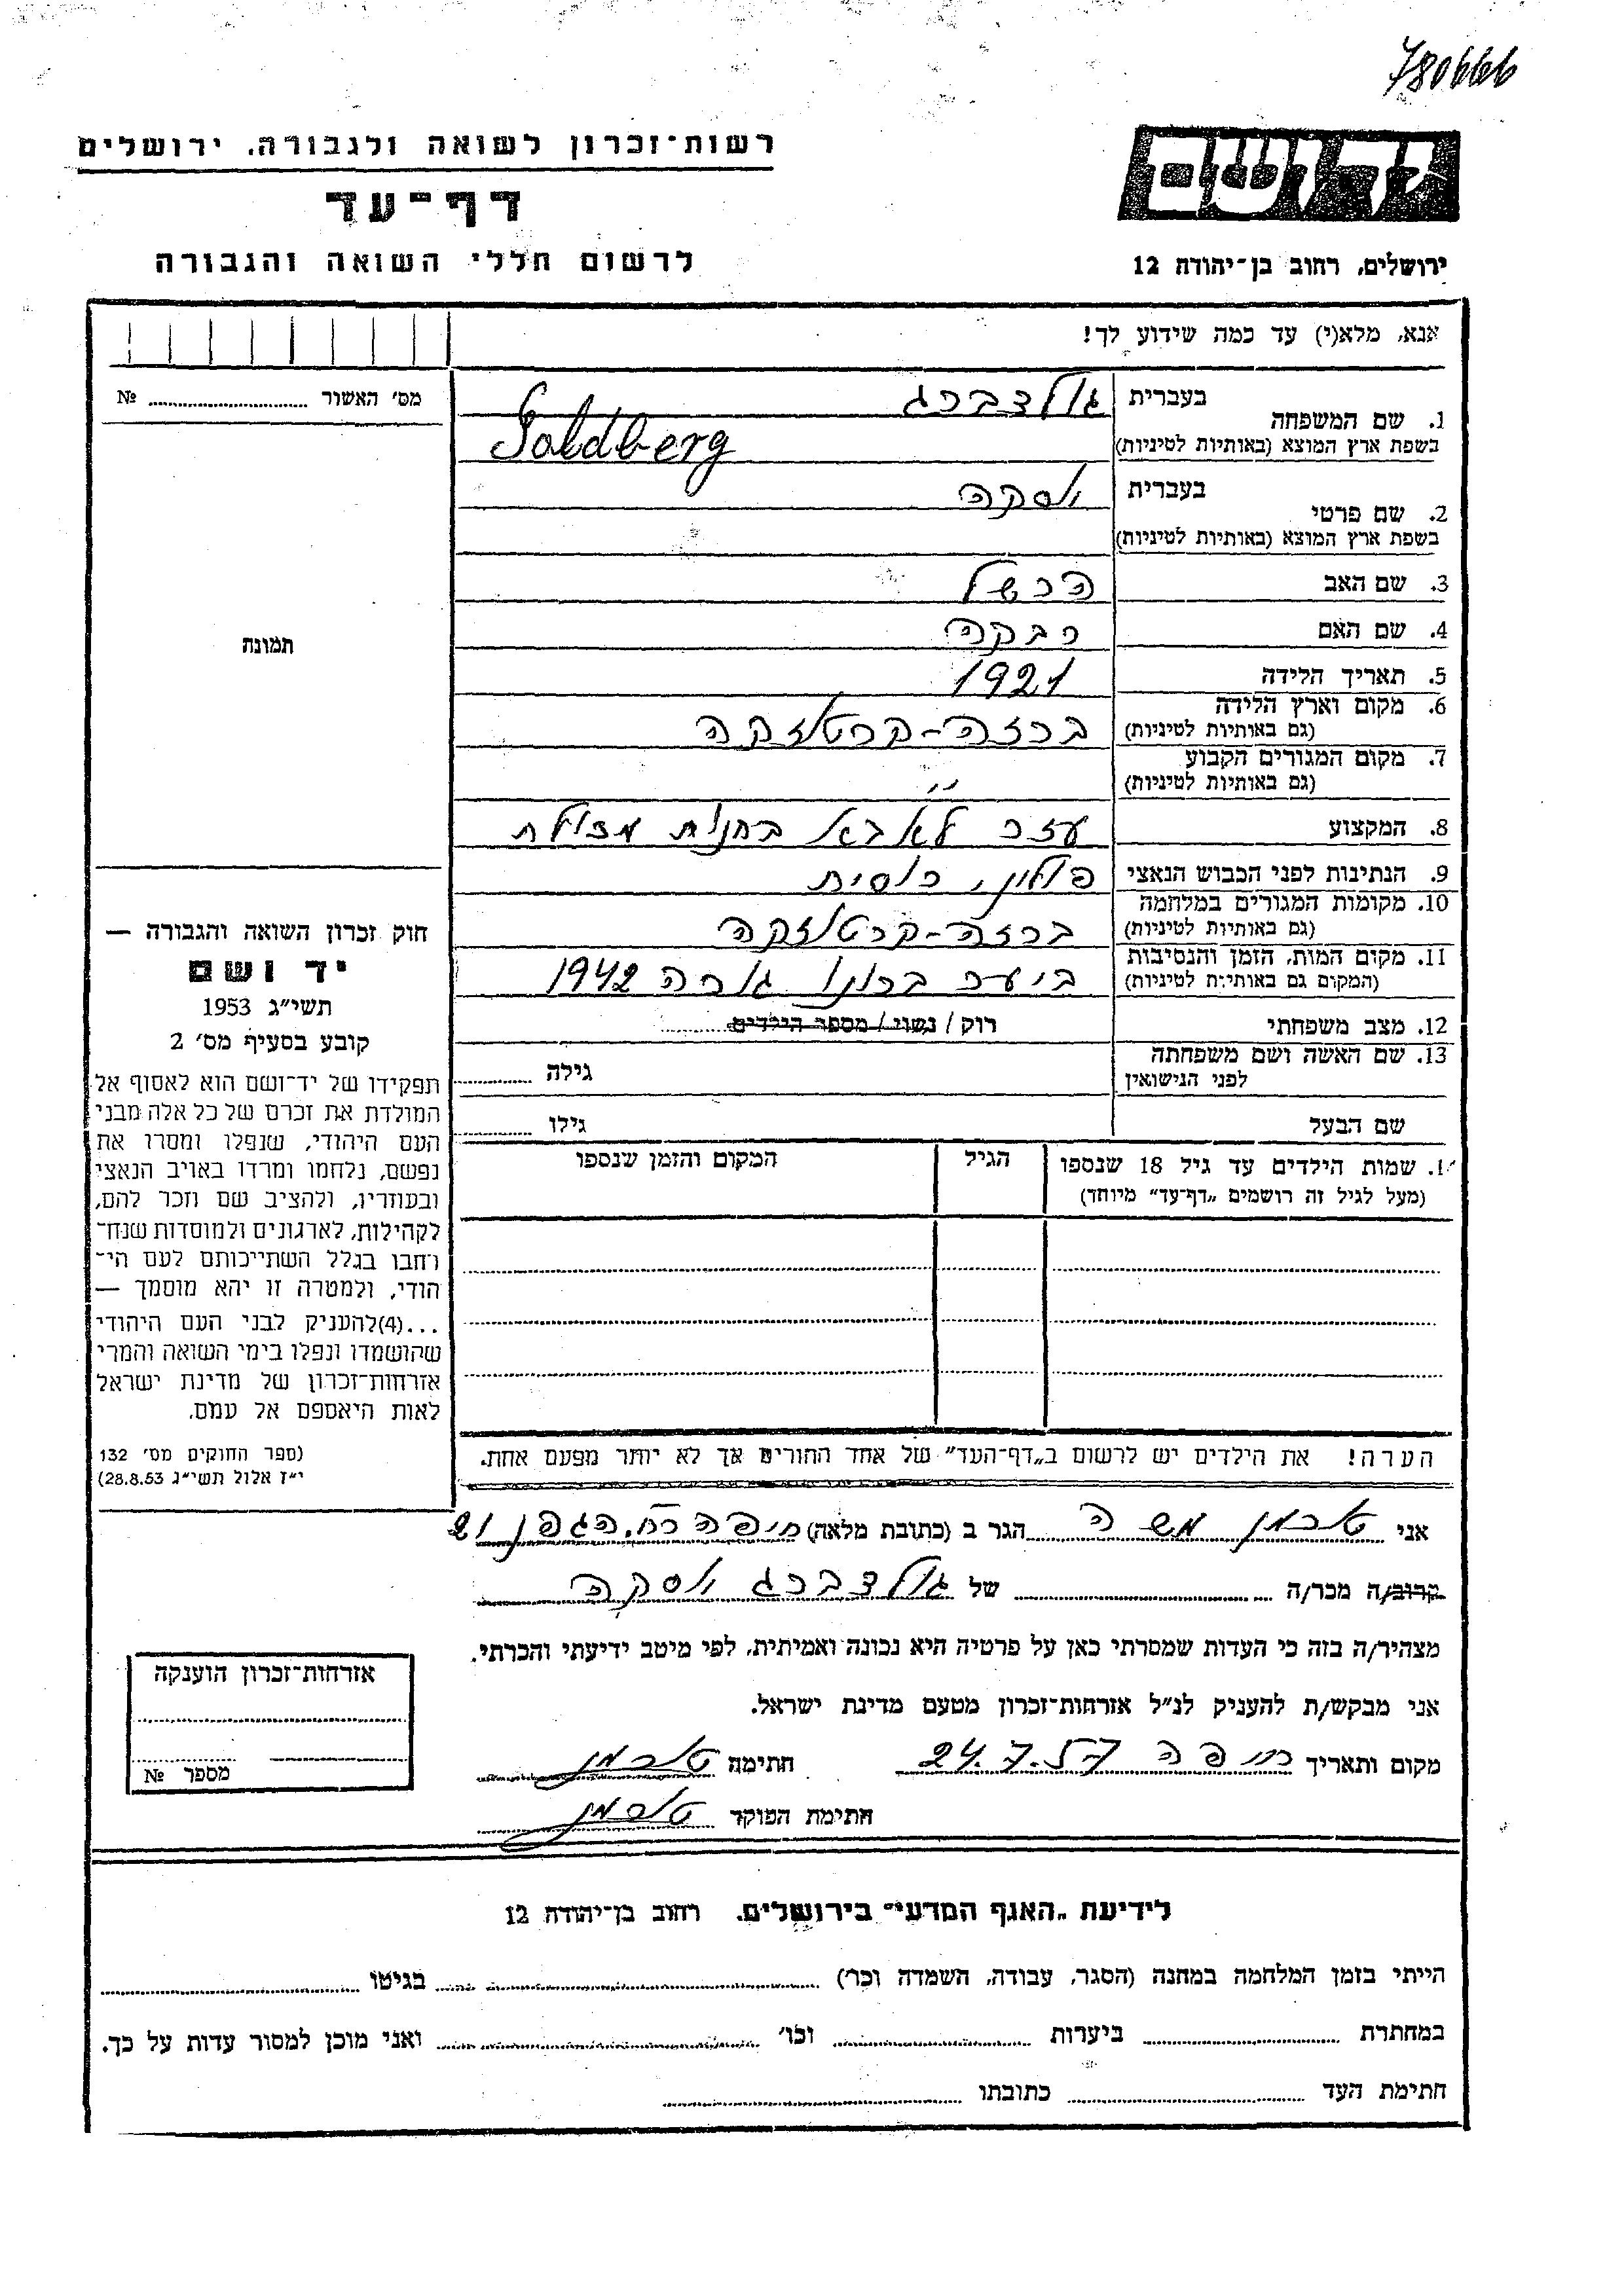 780666
רשות־זכרון לשואה ולגבורה, ירושלים
דף־עד
לרשום חללי השואה והגבורה
יד ושם
ירושלים, רחוב בן־יהודה 12
אנא, מלא(י) עד כמה שידוע לך!
מס׳ האשור № 
1. שם המשפחה
בעברית גולדברג
בשפת ארץ המוצא (באותיות לטיניות) Goldberg
2. שם פרטי
בעברית יוסקה
בשפת ארץ המוצא (באותיות לטיניות)
3. שם האב הרשל
4. שם האם רבקה
5. תאריך הלידה 1921
6. מקום וארץ הלידה ברזה-קרטוזקה
(גם באותיות לטיניות)
7. מקום המגורים הקבוע ״
(גם באותיות לטיניות)
8. המקצוע עזר לאבא בחנות מכולת
9. הנתינות לפני הכבוש הנאצי פולין, רוסית
10. מקומות המגורים במלחמה ברזה-קרטוזקה
(גם באותיות לטיניות)
11. מקום המות, הזמן והנסיבות ביער ברונו גורה 1942
(המקום גם באותיות לטיניות)
12. מצב משפחתי רוק / נשוי / מספר הילדים
13. שם האשה ושם משפחתה
לפני הנישואין
גילה
שם הבעל גילו
תמונה
חוק זכרון השואה והגבורה —
יד ושם
תשי״ג 1953
קובע בסעיף מס׳ 2
תפקידו של יד־ושם הוא לאסוף אל
המולדת את זכרם של כל אלה מבני
העם היהודי, שנפלו ומסרו את
נפשם, נלחמו ומרדו באויב הנאצי
ובעוזריו, ולהציב שם וזכר להם,
לקהילות, לארגונים ולמוסדות שנח־
רחבו בגלל השתייכותם לעם הי־
הודי, ולמטרה זו יהא מוסמך —
...(4)להעניק לבני העם היהודי
שהושמדו ונפלו בימי השואה והמרי
אזרחות־זכרון של מדינת ישראל
לאות היאספם אל עמם.
(ספר החוקים מס׳ 132
י״ז אלול תשי״ג 28.8.53)
1. שמות הילדים עד גיל 18 שנספו
(מעל לגיל זה רושמים „דף־עד״ מיוחד)
הגיל
המקום והזמן שנספו
הערה! את הילדים יש לרשום ב„דף־העד״ של אחד ההורים אך לא יותר מפעם אחת.
אני טוכמן משה הגר ב (כתובת מלאה) חיפה רח. הגפן 21
קרוב/ה מכר/ה של גולדברג יוסקה
מצהיר/ה בזה כי העדות שמסרתי כאן על פרטיה היא נכונה ואמיתית, לפי מיטב ידיעתי והכרתי.
אני מבקש/ת להעניק לנ״ל אזרחות־זכרון מטעם מדינת ישראל.
מקום ותאריך חיפה 24.7.57 חתימה טוכמן
חתימת הפוקד טוכמן
אזרחות־זכרון הוענקה
מספר №
לידיעת „האגף המדעי״ בירושלים, רחוב בן־יהודה 12
הייתי בזמן המלחמה במחנה (הסגר, עבודה, השמדה וכר) בגיטו
במחתרת ביערות וכו׳ ואני מוכן למסור עדות על כך.
חתימת העד כתובתו